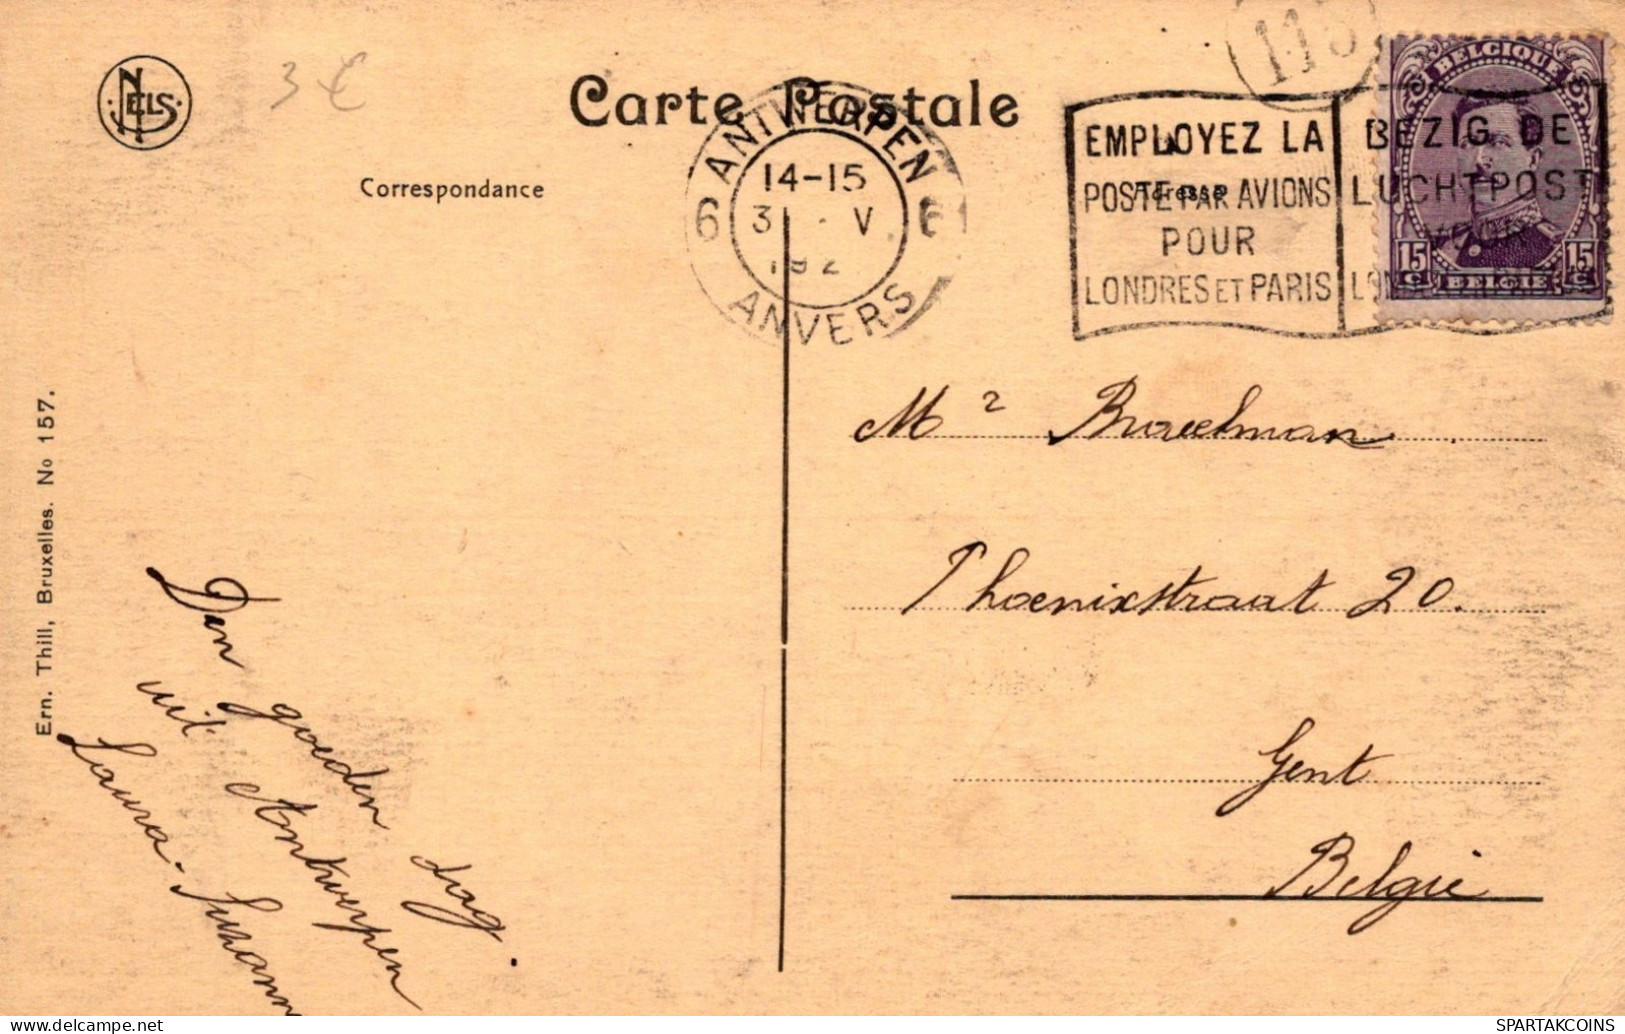 NELS
3 €
Carte Postale
Correspondance
Adresse
ANTWERPEN
6 6
14-15
3 . V
192
ANVERS
EMPLOYEZ LA
POSTE PAR AVIONS
POUR
LONDRES ET PARIS
BEZIG DE
LUCHTPOST
BELGIQUE
15 C 15 C
BELGIË
Ern. Thill, Bruxelles. No 157.
Mr Braeckman
Phoenixstraat 20.
Gent
België
Den goeden dag.
uit Antwerpen
Laura.
WWW.SPARTAKCOINS.COM
SPARTAKCOINS